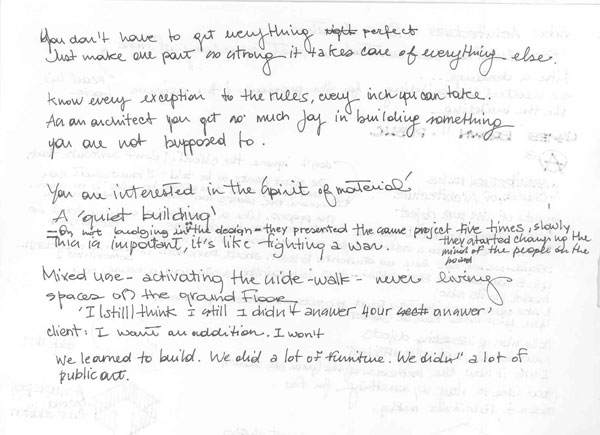 You don't have to get everything right perfect
Just make one part so strong it takes care of everything else.
Know every exception to the rules, every inch you can take.
As an architect you get so much Joy in building something
you are not supposed to.
You are interested in the spirit of material'
A 'quiet building'
On not budging in the design - they presented the same project five times, slowly
they started changing the
mind of the people on the
board
This is important, it's like fighting a war.
Mixed use - activating the side-walk - never living
spaces on the ground floor
'I still think I still I didn't answer your answer'
client: I want an addition. I won't
We learned to build. We did a lot of furniture. We didn" a lot of
public art.